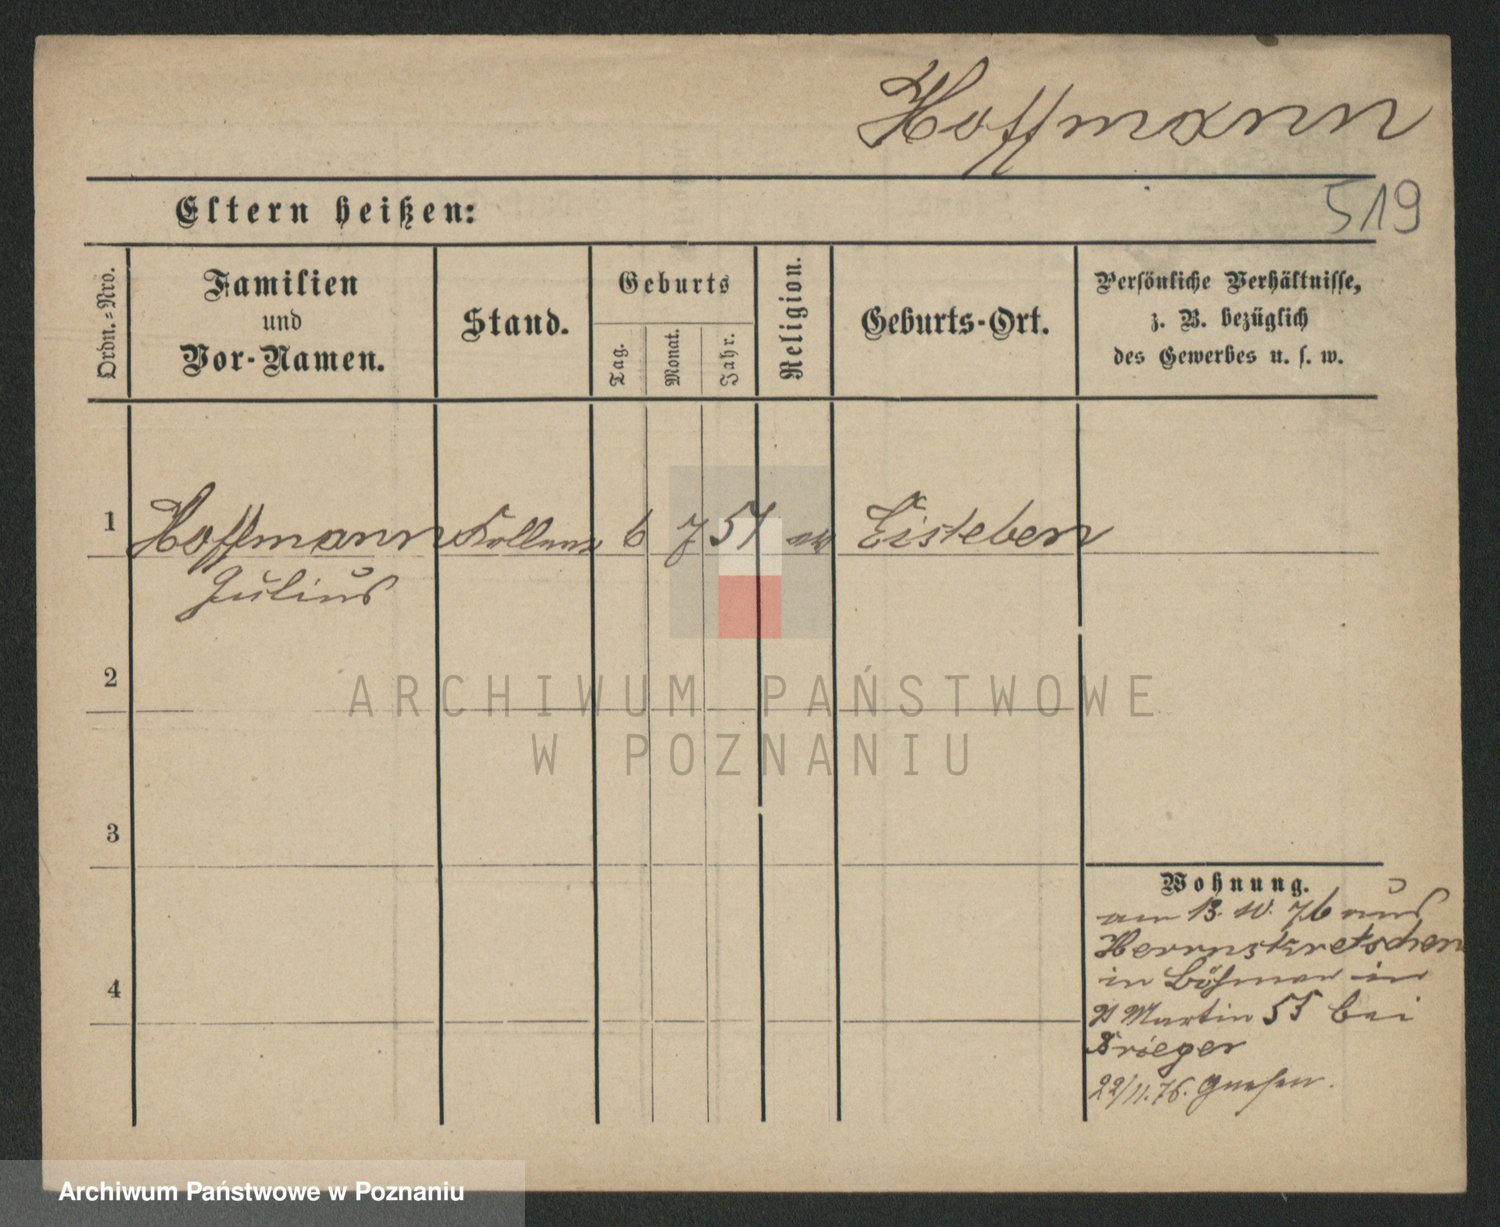 Hoffmann
519
Eltern heißen:
Ordn.=Nro.
Familien
und
Vor-Namen.
Stand.
Geburts
Tag.
Monat.
Jahr.
Religion.
Geburts-Ort.
Persönliche Verhältnisse,
z. B. bezüglich
des Gewerbes u. s. w.
1 Hoffmann 6 7 51 Eisleben
Julius
2
3
4
Wohnung.
am 13. 10. 76 aus
Herrnskretschen
in Böhmen in
St Martin 55 bei
Krieger
22/11.76. Gnesen.
ARCHIWUM PAŃSTWOWE
W POZNANIU
Archiwum Państwowe w Poznaniu